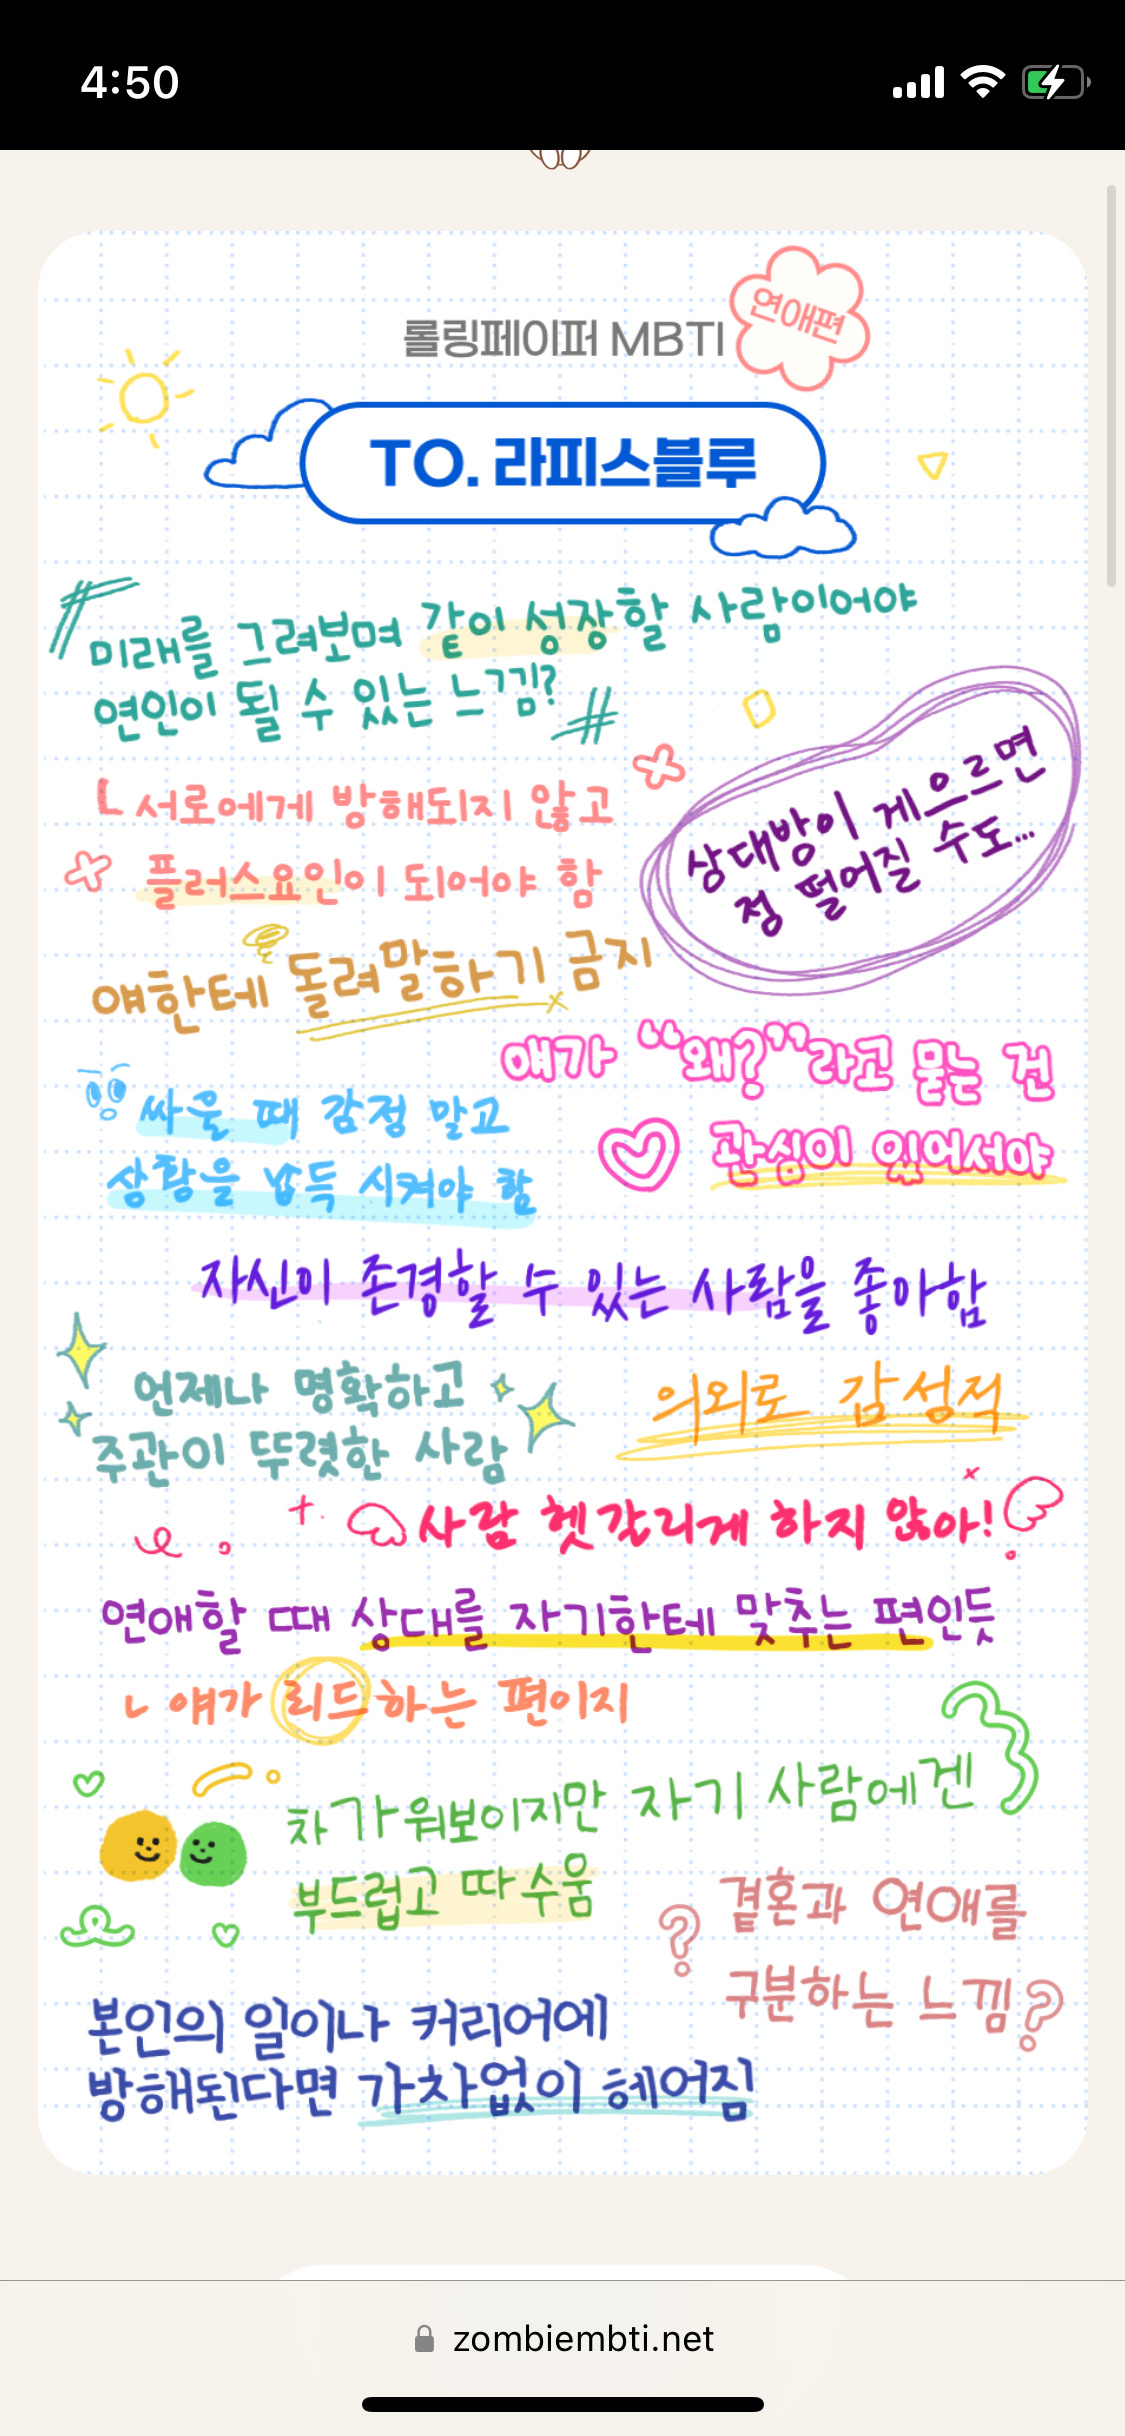 4:50
롤링페이퍼 MBTI
연애편
TO. 라피스블루
미래를 그려보며 같이 성장할 사람이어야
연인이 될 수 있는 느낌?
ㄴ서로에게 방해되지 않고
플러스요인이 되어야 함
상대방이 게으르면
정 떨어질 수도...
얘한테 돌려말하기 금지
얘가 “왜?”라고 묻는 건
관심이 있어서야
싸울 때 감정 말고
상황을 납득 시켜야 함
자신이 존경할 수 있는 사람을 좋아함
언제나 명확하고
주관이 뚜렷한 사람
의외로 감성적
사람 헷갈리게 하지 않아!
연애할 때 상대를 자기한테 맞추는 편인듯
ㄴ 얘가 리드하는 편이지
차가워보이지만 자기 사람에겐
부드럽고 따수움
결혼과 연애를
구분하는 느낌?
본인의 일이나 커리어에
방해된다면 가차없이 헤어짐
zombiembti.net